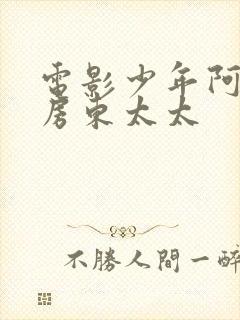 電影少年阿
房東太太
不勝人間一醉